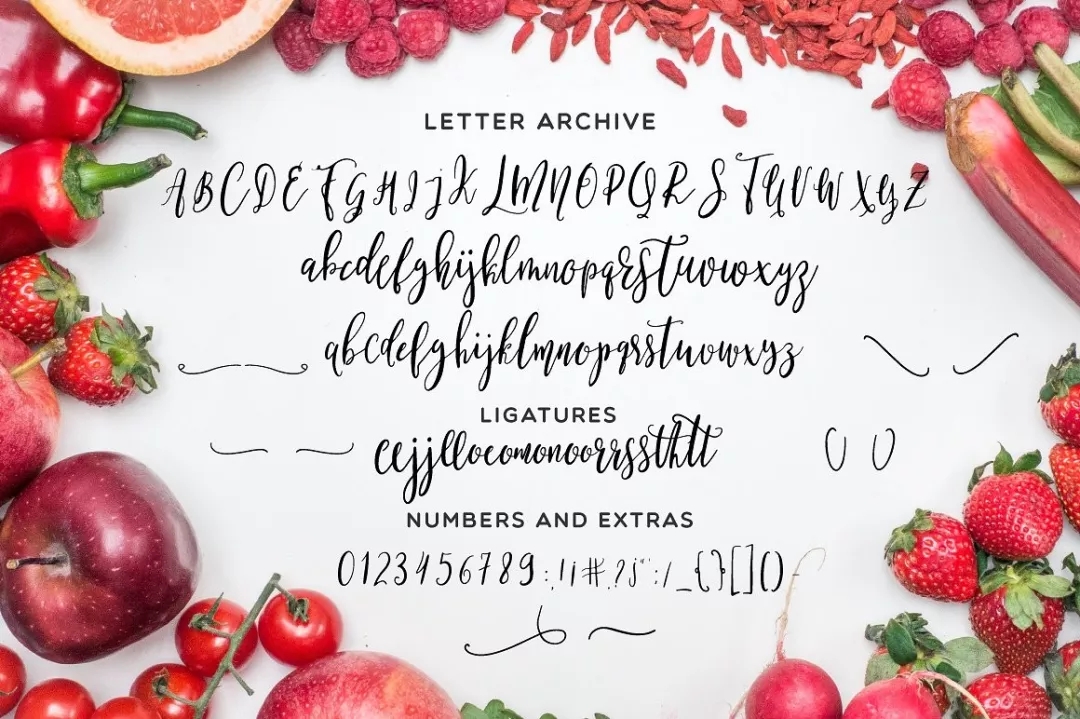 LETTER ARCHIVE
ABCDEFGHIJKLMNOPQRSTUVWXYZ
abcdefghijklmnopqrstuvwxyz
abcdefghijklmnopqrstuvwxyz
LIGATURES
NUMBERS AND EXTRAS
0123456789